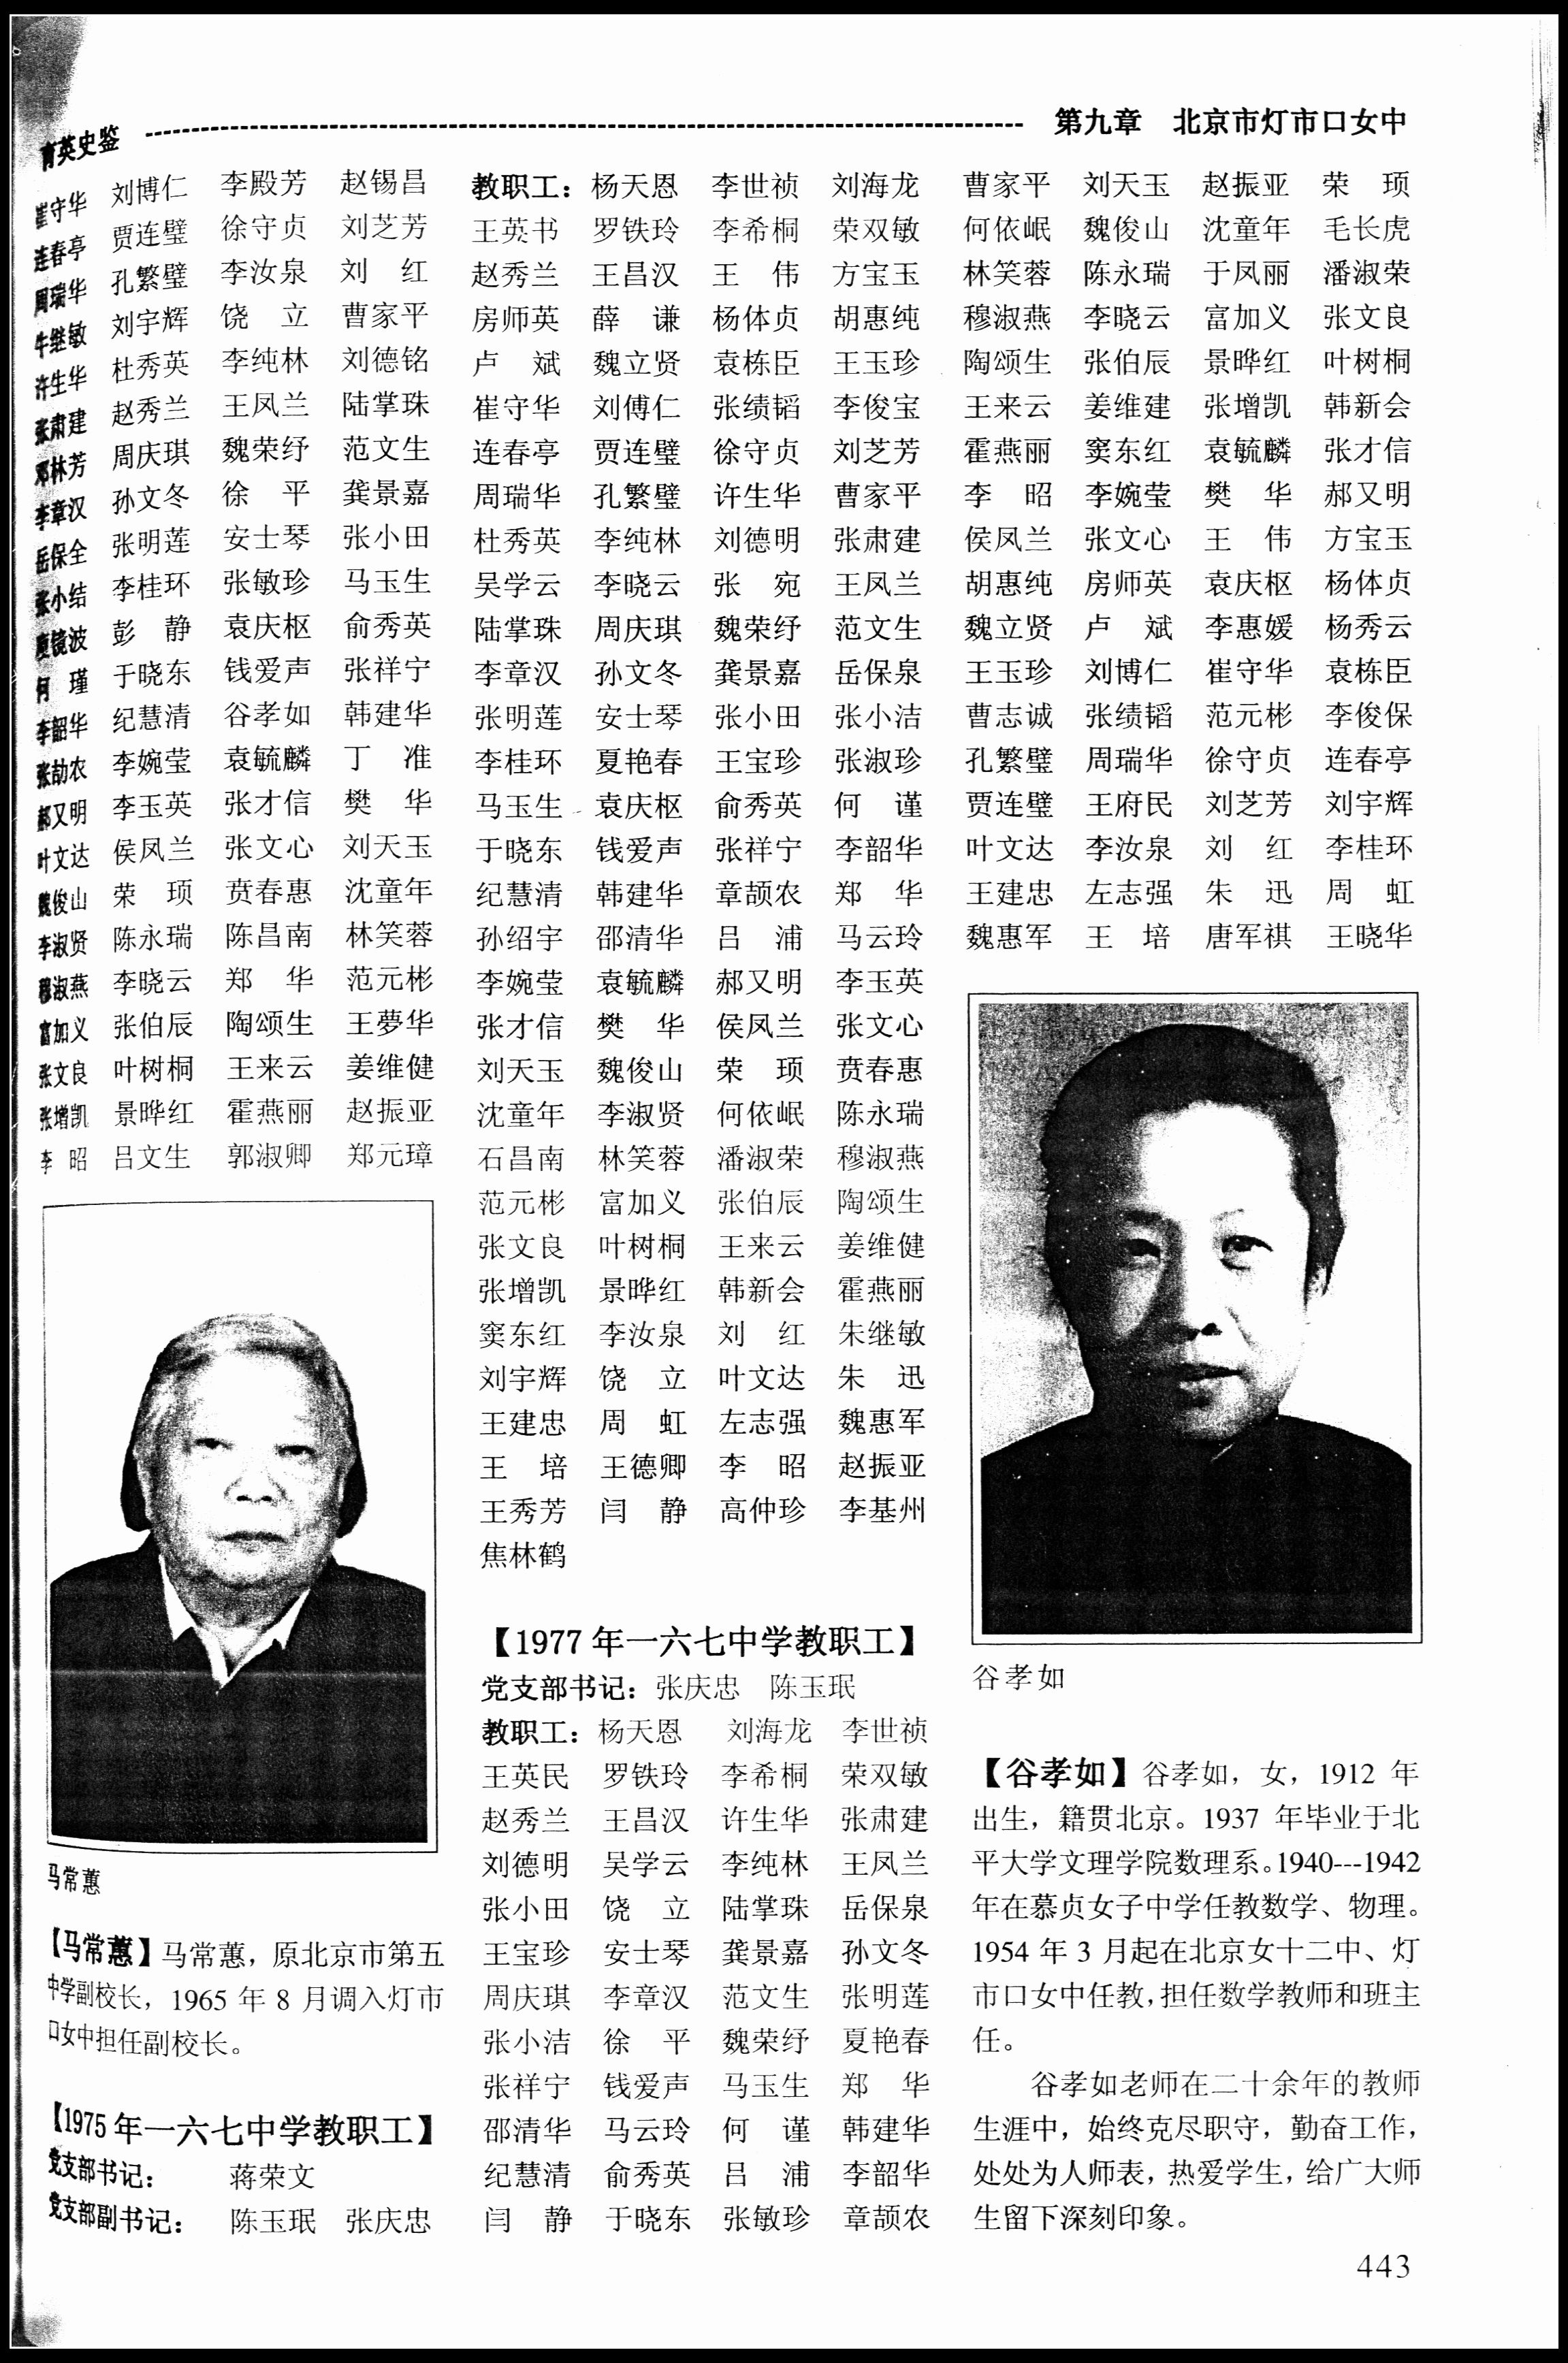 育英史鉴
第九章 北京市灯市口女中
崔守华 刘博仁 李殿芳 赵锡昌
连春亭 贾连璧 徐守贞 刘芝芳
周瑞华 孔繁璧 李汝泉 刘 红
牛继敏 刘宇辉 饶 立 曹家平
许生华 杜秀英 李纯林 刘德铭
张肃建 赵秀兰 王凤兰 陆掌珠
邓林芳 周庆琪 魏荣纾 范文生
李章汉 孙文冬 徐 平 龚景嘉
岳保全 张明莲 安士琴 张小田
张小结 李桂环 张敏珍 马玉生
镜波 彭 静 袁庆枢 俞秀英
何 瑾 于晓东 钱爱声 张祥宁
李韶华 纪慧清 谷孝如 韩建华
张劼农 李婉莹 袁毓麟 丁 准
郝又明 李玉英 张才信 樊 华
叶文达 侯凤兰 张文心 刘天玉
魏俊山 荣 顼 贲春惠 沈童年
李淑贤 陈永瑞 陈昌南 林笑蓉
穆淑燕 李晓云 郑 华 范元彬
富加义 张伯辰 陶颂生 王夢华
张文良 叶树桐 王来云 姜维健
张增凯 景晔红 霍燕丽 赵振亚
李 昭 吕文生 郭淑卿 郑元璋
马常蕙
【马常蕙】马常蕙，原北京市第五
中学副校长，1965 年 8 月调入灯市
口女中担任副校长。
【1975 年一六七中学教职工】
党支部书记： 蒋荣文
党支部副书记： 陈玉珉 张庆忠
教职工：杨天恩 李世祯 刘海龙
王英书 罗铁玲 李希桐 荣双敏
赵秀兰 王昌汉 王 伟 方宝玉
房师英 薛 谦 杨体贞 胡惠纯
卢 斌 魏立贤 袁栋臣 王玉珍
崔守华 刘傅仁 张绩韬 李俊宝
连春亭 贾连璧 徐守贞 刘芝芳
周瑞华 孔繁璧 许生华 曹家平
杜秀英 李纯林 刘德明 张肃建
吴学云 李晓云 张 宛 王凤兰
陆掌珠 周庆琪 魏荣纾 范文生
李章汉 孙文冬 龚景嘉 岳保泉
张明莲 安士琴 张小田 张小洁
李桂环 夏艳春 王宝珍 张淑珍
马玉生 袁庆枢 俞秀英 何 谨
于晓东 钱爱声 张祥宁 李韶华
纪慧清 韩建华 章颉农 郑 华
孙绍宇 邵清华 吕 浦 马云玲
李婉莹 袁毓麟 郝又明 李玉英
张才信 樊 华 侯凤兰 张文心
刘天玉 魏俊山 荣 顼 贲春惠
沈童年 李淑贤 何依岷 陈永瑞
石昌南 林笑蓉 潘淑荣 穆淑燕
范元彬 富加义 张伯辰 陶颂生
张文良 叶树桐 王来云 姜维健
张增凯 景晔红 韩新会 霍燕丽
窦东红 李汝泉 刘 红 朱继敏
刘宇辉 饶 立 叶文达 朱 迅
王建忠 周 虹 左志强 魏惠军
王 培 王德卿 李 昭 赵振亚
王秀芳 闫 静 高仲珍 李基州
焦林鹤
【1977 年一六七中学教职工】
党支部书记：张庆忠 陈玉珉
教职工：杨天恩 刘海龙 李世祯
王英民 罗铁玲 李希桐 荣双敏
赵秀兰 王昌汉 许生华 张肃建
刘德明 吴学云 李纯林 王凤兰
张小田 饶 立 陆掌珠 岳保泉
王宝珍 安士琴 龚景嘉 孙文冬
周庆琪 李章汉 范文生 张明莲
张小洁 徐 平 魏荣纾 夏艳春
张祥宁 钱爱声 马玉生 郑 华
邵清华 马云玲 何 谨 韩建华
纪慧清 俞秀英 吕 浦 李韶华
闫 静 于晓东 张敏珍 章颉农
曹家平 刘天玉 赵振亚 荣 顼
何依岷 魏俊山 沈童年 毛长虎
林笑蓉 陈永瑞 于凤丽 潘淑荣
穆淑燕 李晓云 富加义 张文良
陶颂生 张伯辰 景晔红 叶树桐
王来云 姜维建 张增凯 韩新会
霍燕丽 窦东红 袁毓麟 张才信
李 昭 李婉莹 樊 华 郝又明
侯凤兰 张文心 王 伟 方宝玉
胡惠纯 房师英 袁庆枢 杨体贞
魏立贤 卢 斌 李惠媛 杨秀云
王玉珍 刘博仁 崔守华 袁栋臣
曹志诚 张绩韬 范元彬 李俊保
孔繁璧 周瑞华 徐守贞 连春亭
贾连璧 王府民 刘芝芳 刘宇辉
叶文达 李汝泉 刘 红 李桂环
王建忠 左志强 朱 迅 周 虹
魏惠军 王 培 唐军祺 王晓华
谷孝如
【谷孝如】谷孝如，女，1912 年
出生，籍贯北京。1937 年毕业于北
平大学文理学院数理系。1940---1942
年在慕贞女子中学任教数学、物理。
1954 年 3 月起在北京女十二中、灯
市口女中任教，担任数学教师和班主
任。
谷孝如老师在二十余年的教师
生涯中，始终克尽职守，勤奋工作，
处处为人师表，热爱学生，给广大师
生留下深刻印象。
443